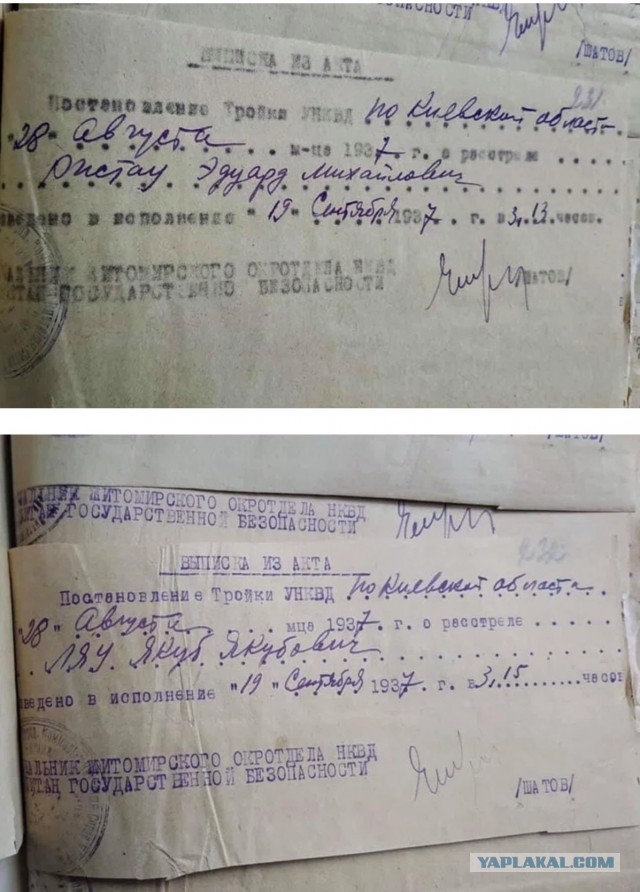 БЕЗОПАСНОСТИ
/ШАТОВ/
231
ВЫПИСКА ИЗ АКТА
Постановление Тройки УНКВД по Киевской области
"28" Августа м-ца 1937 г. о расстреле
Эдуард Михайлович
ведено в исполнение "19" Сентября 1937 г. в 3.13 часов.
АЛЬНИК ЖИТОМИРСКОГО ОКРОТДЕЛА НКВД
ИТАН ГОСУДАРСТВЕННО БЕЗОПАСНОСТИ
ШАТОВ/
/ШАТОВ/
АЛЬНИК ЖИТОМИРСКОГО ОКРОТДЕЛА НКВД
ИТАН ГОСУДАРСТВЕННОЙ БЕЗОПАСНОСТИ
232
ВЫПИСКА ИЗ АКТА
Постановление Тройки УНКВД по Киевской области
"28" Августа мца 1937 г. о расстреле
ЛЯУ Якуб Якубович
ведено в исполнение "19" Сентября 1937 г. в 3.15 часов
АЛЬНИК ЖИТОМИРСКОГО ОКРОТДЕЛА НКВД
ИТАН ГОСУДАРСТВЕННОЙ БЕЗОПАСНОСТИ
/ШАТОВ/
YAPLAKAL.COM